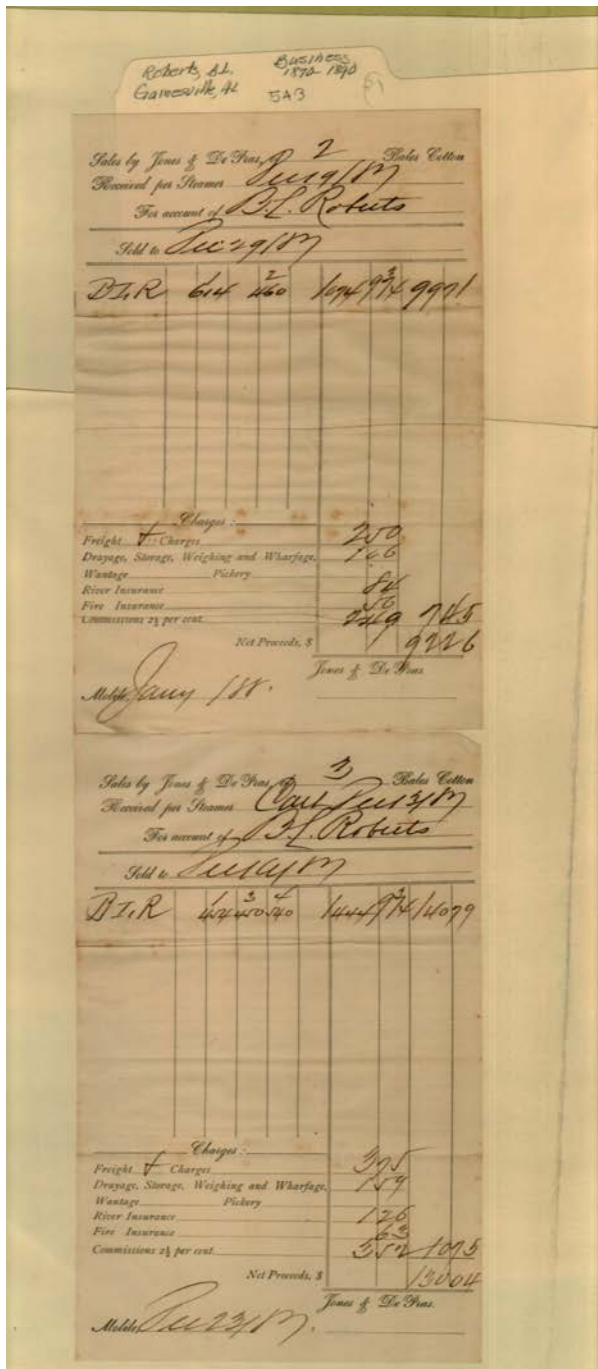 Roberts, B.L. Business
Gainesville, AL 1870-1890
5A3
Sales by Jones & De Pras, of 2 Bales Cotton
Received per Steamer Dec 19/87
For account of B. L. Roberts
Sold to Dec 29/87
BLR 614 460 1074 9 3/4 9971
2
Charges:
Freight & Charges 250
Drayage, Storage, Weighing and Wharfage,
Wantage Pickery
River Insurance 84
Fire Insurance
Commissions 2½ per cent. 249 745
Net Proceeds, $ 9226
Jones & De Pras.
Mobile, Jany 1/88.
Sales by Jones & De Pras, of 3 Bales Cotton
Received per Steamer Dec 13/87
For account of B. L. Roberts
Sold to
1 3 4
BLR 454 450 540 1444 9 3/4 14079
Charges:
Freight & Charges 395
Drayage, Storage, Weighing and Wharfage, 159
Wantage Pickery
River Insurance 126
Fire Insurance 63
Commissions 2½ per cent. 352 1075
Net Proceeds, $ 13004
Jones & De Pras.
Mobile, Dec 23/87.